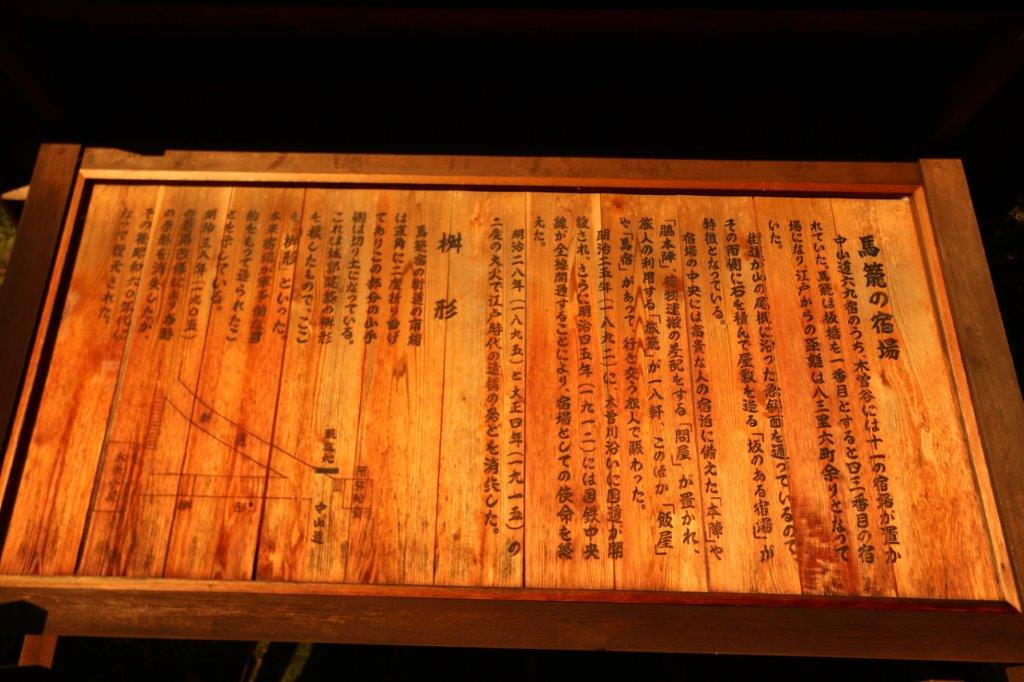 馬籠の宿場
中山道六九宿のうち、木曽谷には十一の宿場が置か
れていた。馬籠は板橋を一番目とすると四三番目の宿
場になり江戸からの距離は八三里六町余りとなって
いた。
街道が山の尾根に沿った急斜面を通っているので、
その両側に石を積んで屋敷を造る「坂のある宿場」が
特徴となっている。
宿場の中央には高貴な人の宿泊に備えた「本陣」や
「脇本陣」、荷物運搬の差配をする「問屋」が置かれ、
旅人の利用する「旅籠」が一八軒、このほか「飯屋」
や「馬宿」があって、行き交う旅人で賑わった。
明治二五年（一八九二）に、木曽川沿いに国道が開
設され、さらに明治四五年（一九一二）には国鉄中央
線が全線開通することにより、宿場としての使命を終
えた。
明治二八年（一八九五）と大正四年（一九一五）の
二度の大火で江戸時代の遺構の殆どを消失した。
桝形
馬籠宿の街道の両端
は直角に二度折り曲げ
てありこの部分の山手
側は切り土になっている。
これは城郭建築の桝形
を模したもので、ここ
も「桝形」といった。
本来宿場が軍事的な目
的をもって造られたこ
とを示している。
明治三八年（一九〇五）
の道路改修により当時
の原形を消失したが、
その後昭和六〇年代に
なって復元された。
現在地
中山道
桝
形